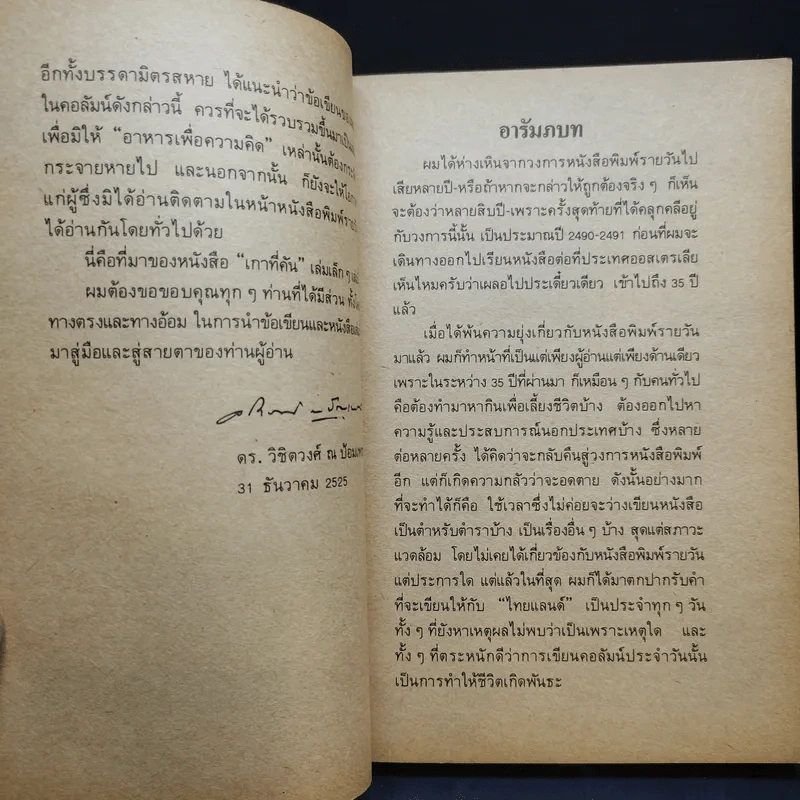 อีกทั้งบรรดามิตรสหาย ได้แนะนำว่าข้อเขียน
ในคอลัมน์ดังกล่าวนี้ ควรที่จะได้รวบรวมขึ้นมา
เพื่อมิให้ “อาหารเพื่อความคิด” เหล่านั้นต้อง
กระจายหายไป และนอกจากนั้น ก็ยังจะให้
แก่ผู้ซึ่งมิได้อ่านติดตามในหน้าหนังสือพิมพ์
ได้อ่านกันโดยทั่วไปด้วย
นี่คือที่มาของหนังสือ “เกาที่คัน” เล่มเล็ก ๆ
ผมต้องขอขอบคุณทุก ๆ ท่านที่ได้มีส่วน
ทางตรงและทางอ้อม ในการนำข้อเขียนและหนังสือ
มาสู่มือและสู่สายตาของท่านผู้อ่าน
ดร. วิชิตวงศ์ ณ ป้อมเพชร
31 ธันวาคม 2525
อารัมภบท
ผมได้ห่างเหินจากวงการหนังสือพิมพ์รายวันไป
เสียหลายปี-หรือถ้าหากจะกล่าวให้ถูกต้องจริง ๆ ก็เห็น
จะต้องว่าหลายสิบปี-เพราะครั้งสุดท้ายที่ได้คลุกคลีอยู่
กับวงการนี้นั้น เป็นประมาณปี 2490-2491 ก่อนที่ผมจะ
เดินทางออกไปเรียนหนังสือต่อที่ประเทศออสเตรเลีย
เห็นไหมครับว่าเผลอไปประเดี๋ยวเดียว เข้าไปถึง 35 ปี
แล้ว
เมื่อได้พ้นความยุ่งเกี่ยวกับหนังสือพิมพ์รายวัน
มาแล้ว ผมก็ทำหน้าที่เป็นแต่เพียงผู้อ่านแต่เพียงด้านเดียว
เพราะในระหว่าง 35 ปีที่ผ่านมา ก็เหมือน ๆ กับคนทั่วไป
คือต้องทำมาหากินเพื่อเลี้ยงชีวิตบ้าง ต้องออกไปหา
ความรู้และประสบการณ์นอกประเทศบ้าง ซึ่งหลาย
ต่อหลายครั้ง ได้คิดว่าจะกลับคืนสู่วงการหนังสือพิมพ์
อีก แต่ก็เกิดความกลัวว่าจะอดตาย ดังนั้นอย่างมาก
ที่จะทำได้ก็คือ ใช้เวลาซึ่งไม่ค่อยจะว่างเขียนหนังสือ
เป็นตำหรับตำราบ้าง เป็นเรื่องอื่น ๆ บ้าง สุดแต่สภาวะ
แวดล้อม โดยไม่เคยได้เกี่ยวข้องกับหนังสือพิมพ์รายวัน
แต่ประการใด แต่แล้วในที่สุด ผมก็ได้มาตกปากรับคำ
ที่จะเขียนให้กับ “ไทยแลนด์” เป็นประจำทุก ๆ วัน
ทั้ง ๆ ที่ยังหาเหตุผลไม่พบว่าเป็นเพราะเหตุใด และ
ทั้ง ๆ ที่ตระหนักดีว่าการเขียนคอลัมน์ประจำวันนั้น
เป็นการทำให้ชีวิตเกิดพันธะ